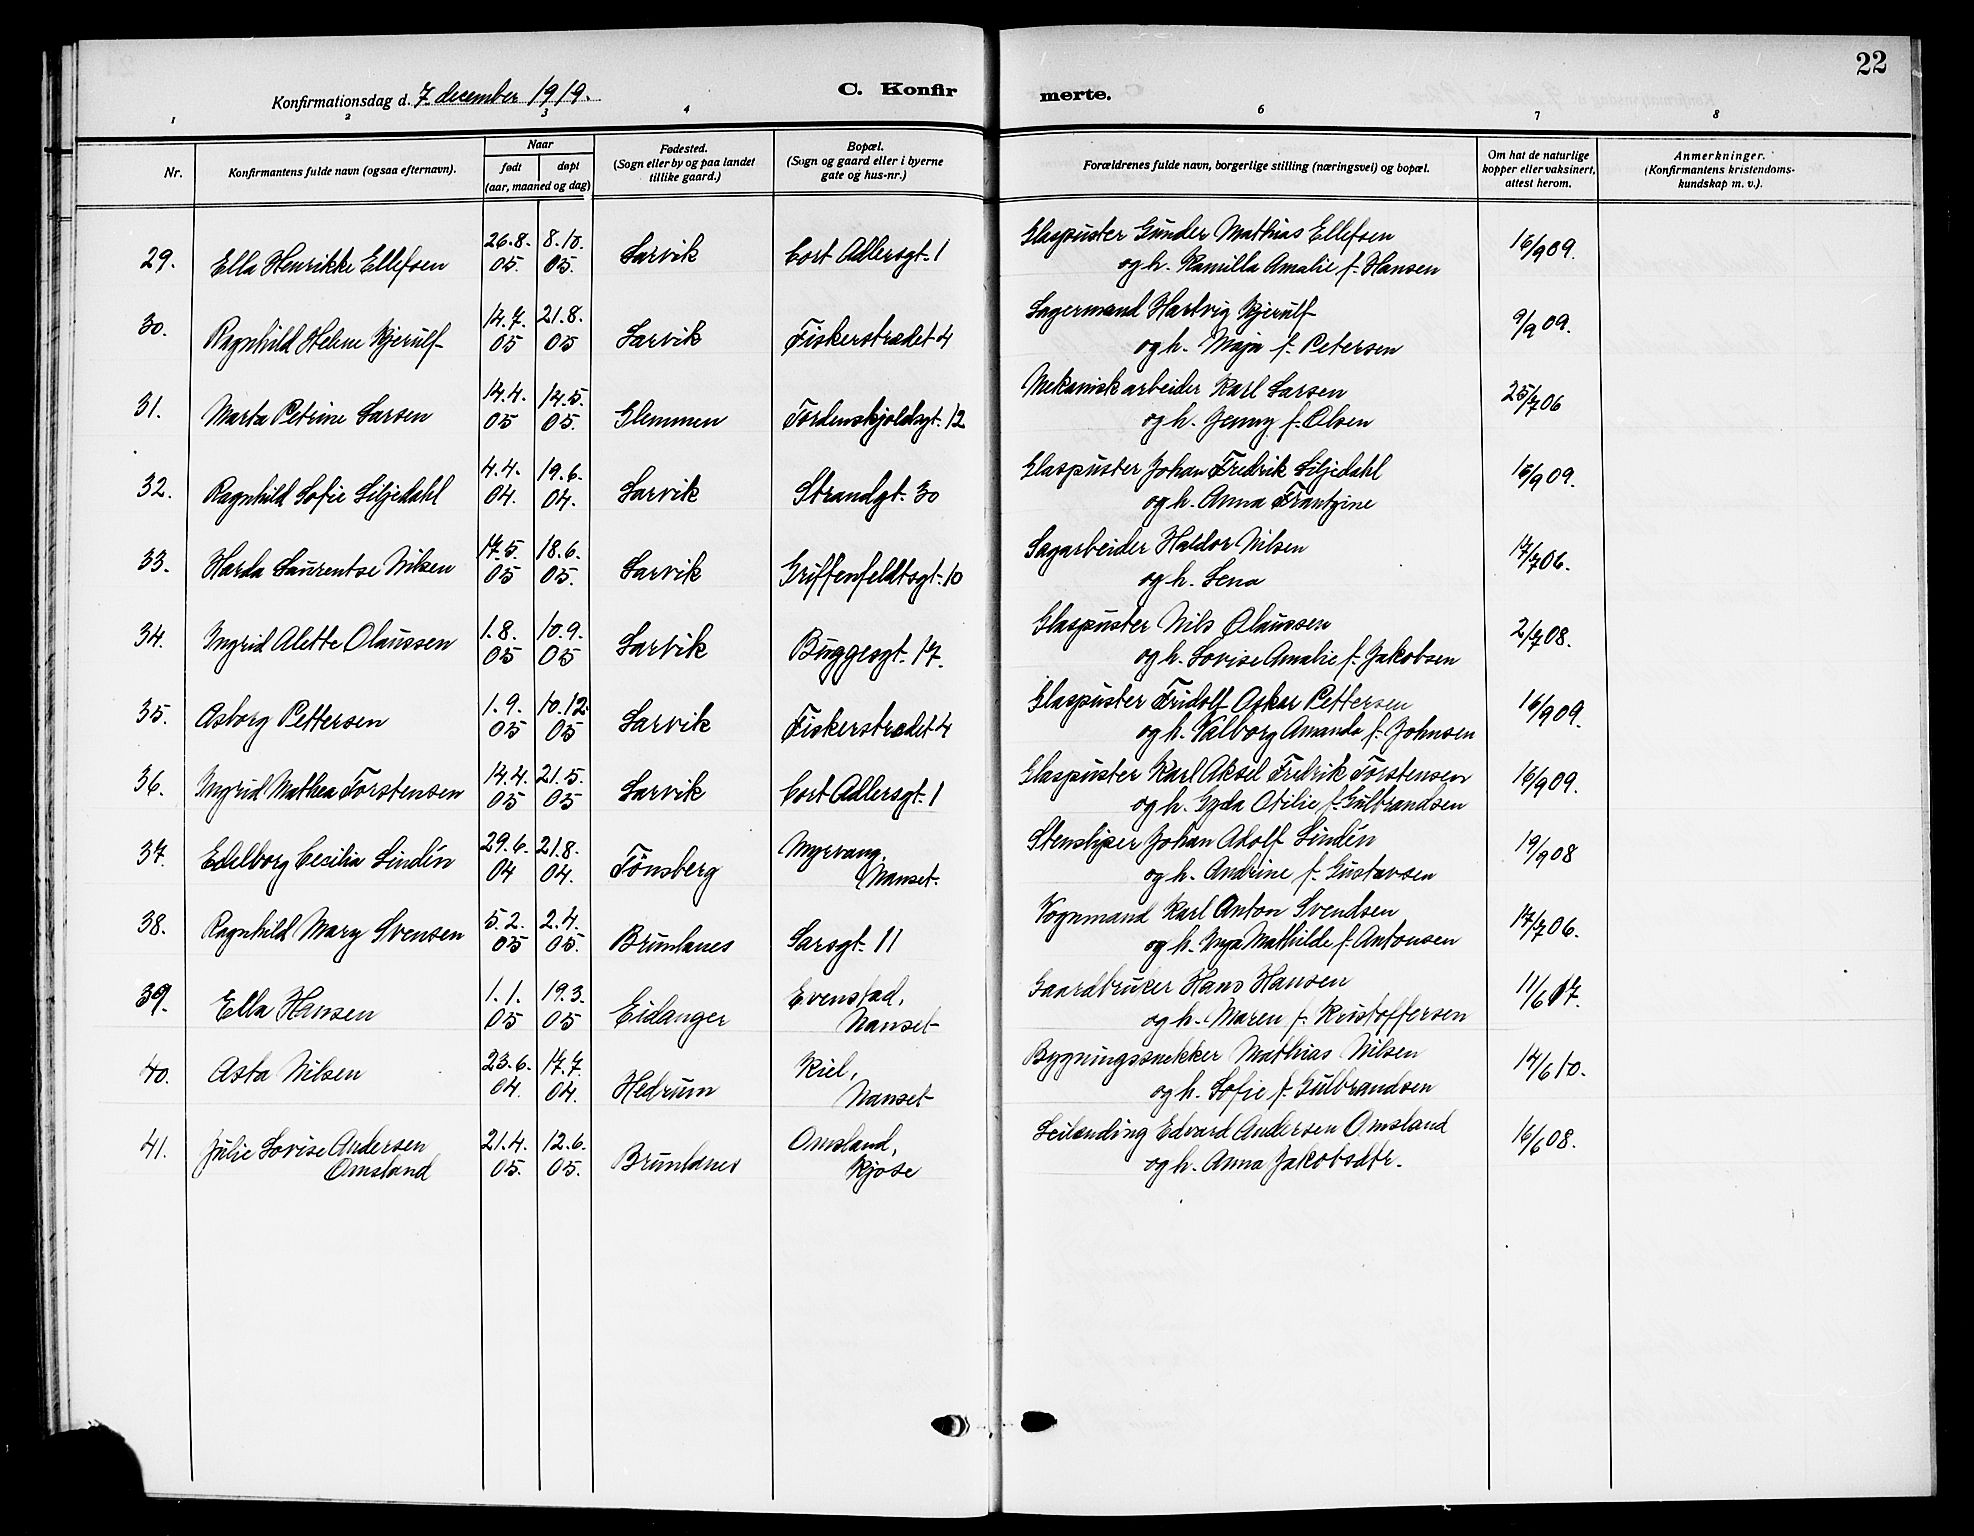 22
Konfirmationsdag d. 7 december 1919.
C. Konfir
merte.
1 2 3 4 6 7 8
Nr.
Konfirmantens fulde navn (ogsaa efternavn).
Naar
født døpt
(aar, maaned og dag)
Fødested.
(Sogn eller by og paa landet
tillike gaard.)
Bopæl.
(Sogn og gaard eller i byerne
gate og hus-nr.)
Forældrenes fulde navn, borgerlige stilling (næringsvei) og bopæl.
Om hat de naturlige
kopper eller vaksinert,
attest herom.
Anmerkninger.
(Konfirmantens kristendoms-
kundskap m. v.).
26.8. 8.10. Glaspuster Gunder Mathias Ellefsen
29. Ella Henrikke Ellefsen 05. 05. Larvik Cort Adlersgt. 1 og h. Kamilla Amalie f. Hansen 16/9 09.
14.7. 21.8. Lagermand Hartvig Kjerulf
30. Ragnhild Helene Kjerulf 05 05 Larvik Fiskerstrædet 4 og h. Maja f. Petersen 9/9 09.
14.4. 14.5. Mekanisk arbeider Karl Larsen
31. Marta Petrine Larsen 05 05. Glemmen Tordenskjoldsgt. 12 og h. Jenny f. Olsen 25/7 06
4.4. 19.6. Glaspuster Johan Fredrik Liljedahl
32. Ragnhild Sofie Liljedahl 04. 04. Larvik Strandgt. 30 og h. Anna Frantzine 16/9 09.
17.5. 18.6. Sagarbeider Haldor Nilsen
33. Harda Laurentse Nilsen 05 05. Larvik Griffenfeldtsgt. 10 og h. Lena 17/7 06.
1.8. 10.9. Glaspuster Nils Olaussen
34. Ingrid Alette Olaussen 05 05 Larvik Buggesgt. 17. og h. Lovise Amalie f. Jakobsen 2/7 08.
1.9. 10.12. Glaspuster Fridolf Oskar Pettersen
35. Asborg Pettersen 05 05 Larvik Fiskerstrædet 4 og h. Valborg Amanda f. Johnsen 16/9 09.
14.4. 21.5. Glaspuster Karl Aksel Fredrik Torstensen
36. Ingrid Mathea Torstensen 05 05 Larvik Cort Adlersgt. 1 og h. Gyda Otilie f. Gulbrandsen 16/9 09.
29.6. 21.8. Myrvang, Stensliper Johan Adolf Lindén
37. Edelborg Cecilia Lindén 04 04. Tønsberg Nanset. og h. Andrine f. Gustavsen 19/9 08
5.2. 2.4. Vognmand Karl Anton Svendsen
38. Ragnhild Mary Svensen 05 05. Brunlanes Larsgt. 11 og h. Inga Mathilde f. Antonsen 17/7 06.
1.1. 19.3. Evenstad, Gaardbruker Hans Hansen
39. Ella Hansen 05 05 Eidanger Nanset og h. Maren f. Kristoffersen 11/6 17.
23.6. 17.7. Kiel, Bygningssnekker Mathias Nilsen
40. Asta Nilsen 04. 04. Hedrum Nanset og h. Sofie f. Gulbrandsen 14/6 10.
41. Julie Lovise Andersen 21.4. 12.6. Omsland, Leilending Edvard Andersen Omsland
Omsland 05. 05. Brunlanes Kjose og h. Anna Jakobsdtr. 16/6 08.